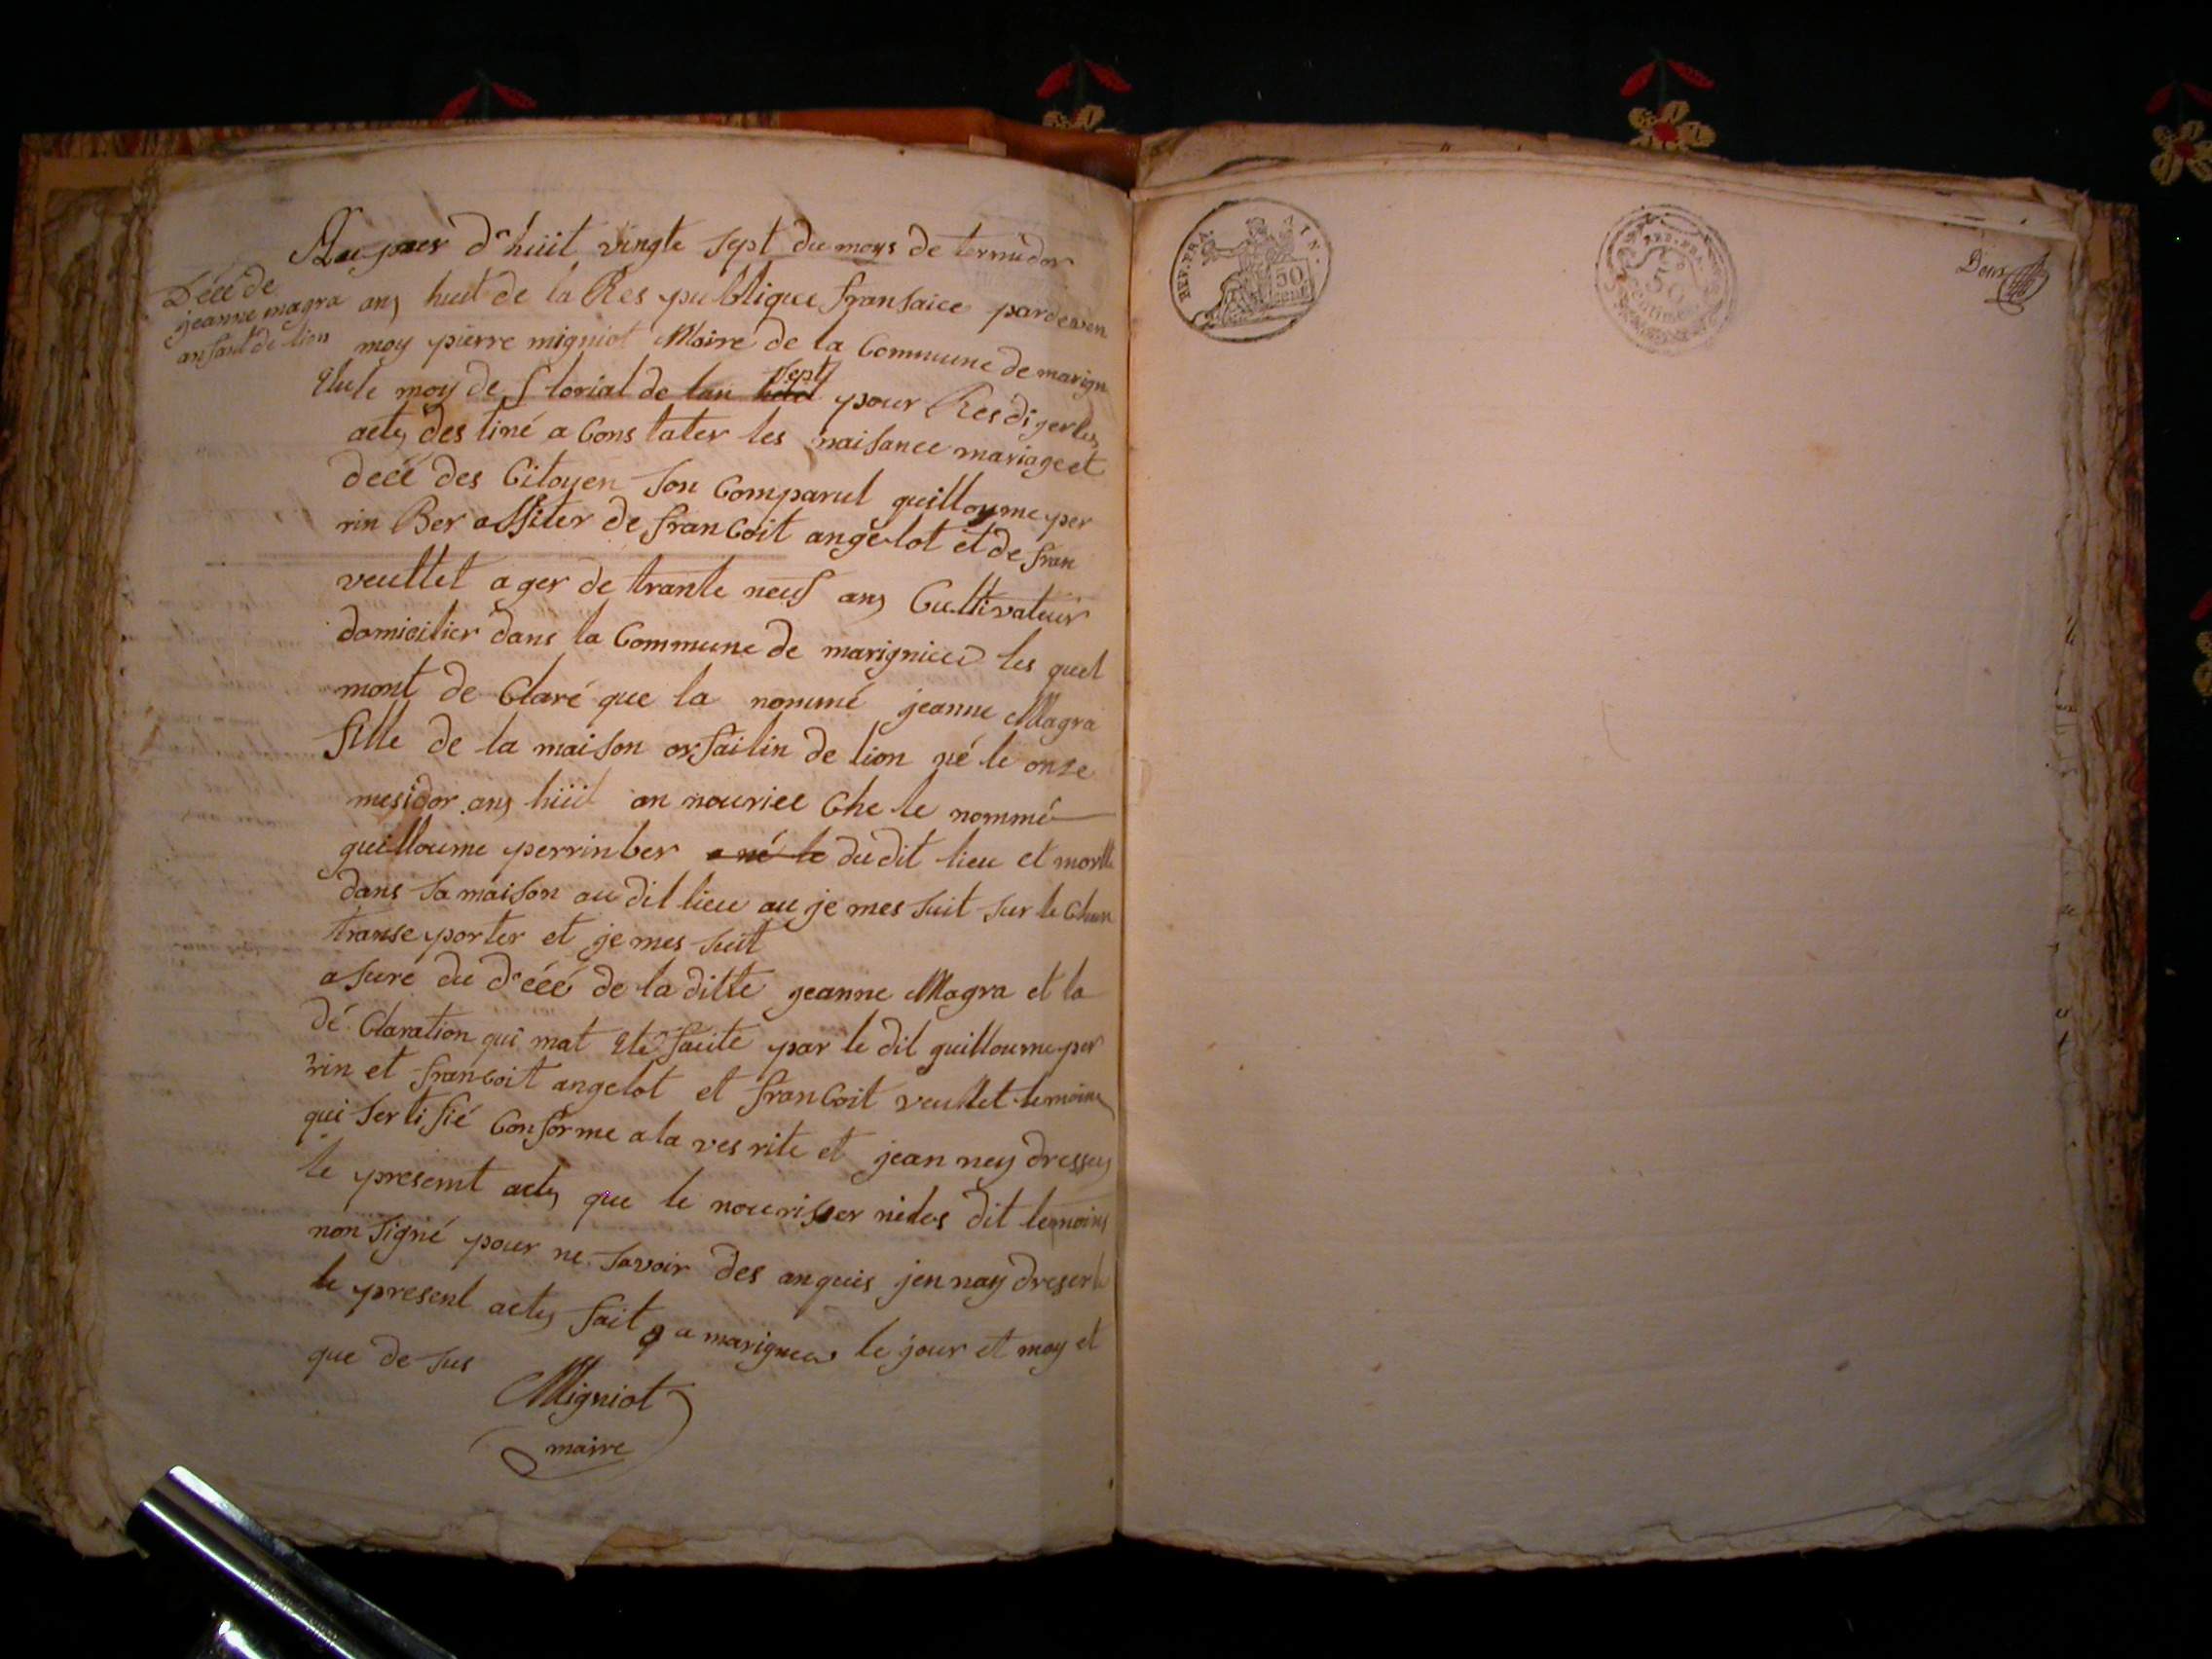 Aujour d'huit vingte sept du moys de termidor
Décé de
jeanne magra
anfant de lion
ans huit de la Res publique fransaice pardeven
moy pierre migniot Maire de la Commune de marign
Elu le moy de florial de lan sept pour Resdiger les
actes destiné a Constater les naisance mariage et
décé des Citoyen son Comparut guilloume per
rin Ber assiter de franCoit angelot et de fran
veuttet ager de trante neuf ans Cultivateur
domicilier dans la Commune de marignieu les quel
mont de Claré que la nommé jeanne Magra
fille de la maison orfailin de lion né le onze
mesidor ans huit an nourice Che le nommé
guilloume perrinber a né le du dit lieu et mortte
dans sa maison au dit lieu au je mes suit sur le Chan
transe porter et je mes suit
asure du d'écé de la ditte jeanne Magra et la
dé Claration qui mat Eté faite par le dit guilloume per
rin et francoit angelot et franCoit veuttet temoins
qui sertifié Conforme a la ves rite et jean ney dresses
le presemt actes que le nourisser nides dit temoins
non signé pour ne savoir des anquis jen nay dreser le
le present actes fait a marignieu le jour et moy et
que de sus
Migniot
maire
REP. FRA.
AIN.
50
cent.
REP. FRA.
50
centimes
Deux